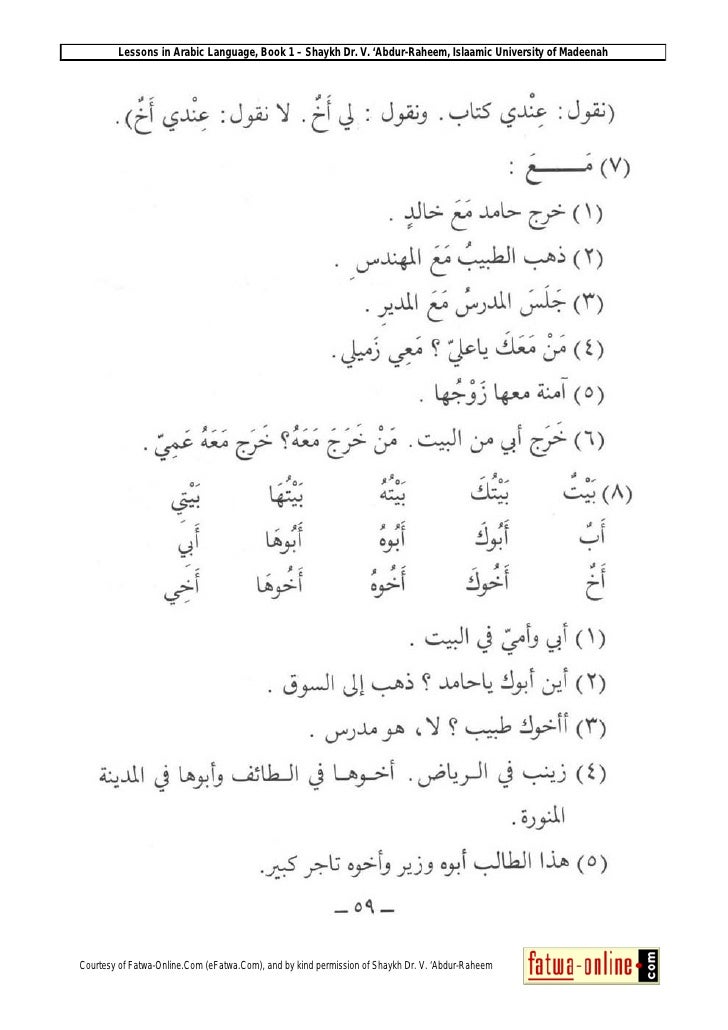 Lessons in Arabic Language, Book 1 – Shaykh Dr. V. ‘Abdur-Raheem, Islaamic University of Madeenah
(نقول: عِنْدي كتاب. ونقول : لي أَخٌ. لا نقول: عِنْدي أَخٌ).
(٧) مَــــعَ :
(١) خرج حامد مَعَ خالدٍ .
(٢) ذهب الطبيبُ مَعَ المهندسِ .
(٣) جَلَسَ المدرسُ مَعَ المديرِ .
(٤) مَنْ مَعَكَ ياعليّ ؟ مَعِي زَميلي.
(٥) آمنة معها زَوْجُها .
(٦) خَرَج أبي من البيت. مَنْ خَرَجَ مَعَهُ؟ خَرَج مَعَهُ عَمِيّ.
(٨) بَيْتٌ بَيْتُكَ بَيْتُهُ بَيْتُهَا بَيْتِي
أَبٌ أَبُوكَ أَبُوهُ أَبُوهَا أَبِي
أَخٌ أَخُوكَ أَخُوهُ أَخُوهَا أَخِي
(١) أبي وأميّ في البيت .
(٢) أين أبوك ياحامد ؟ ذهب إلى السوق .
(٣) أأخوك طبيب ؟ لا، هو مدرس .
(٤) زينب في الـرياض. أخـوهـا في الـطائف وأبوها في المدينة
المنورة.
(٥) هذا الطالب أبوه وزير وأخوه تاجر كبير.
– ٥٩ –
Courtesy of Fatwa-Online.Com (eFatwa.Com), and by kind permission of Shaykh Dr. V. ‘Abdur-Raheem
fatwa-online.com